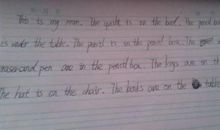 This is my room. The quilt is on the bed. The pencil box
es under the table. The pencil is in the pencil box. The
eraser and pen are in the pencil box. The legs are on th
The hat is on the chair. The books are on the table